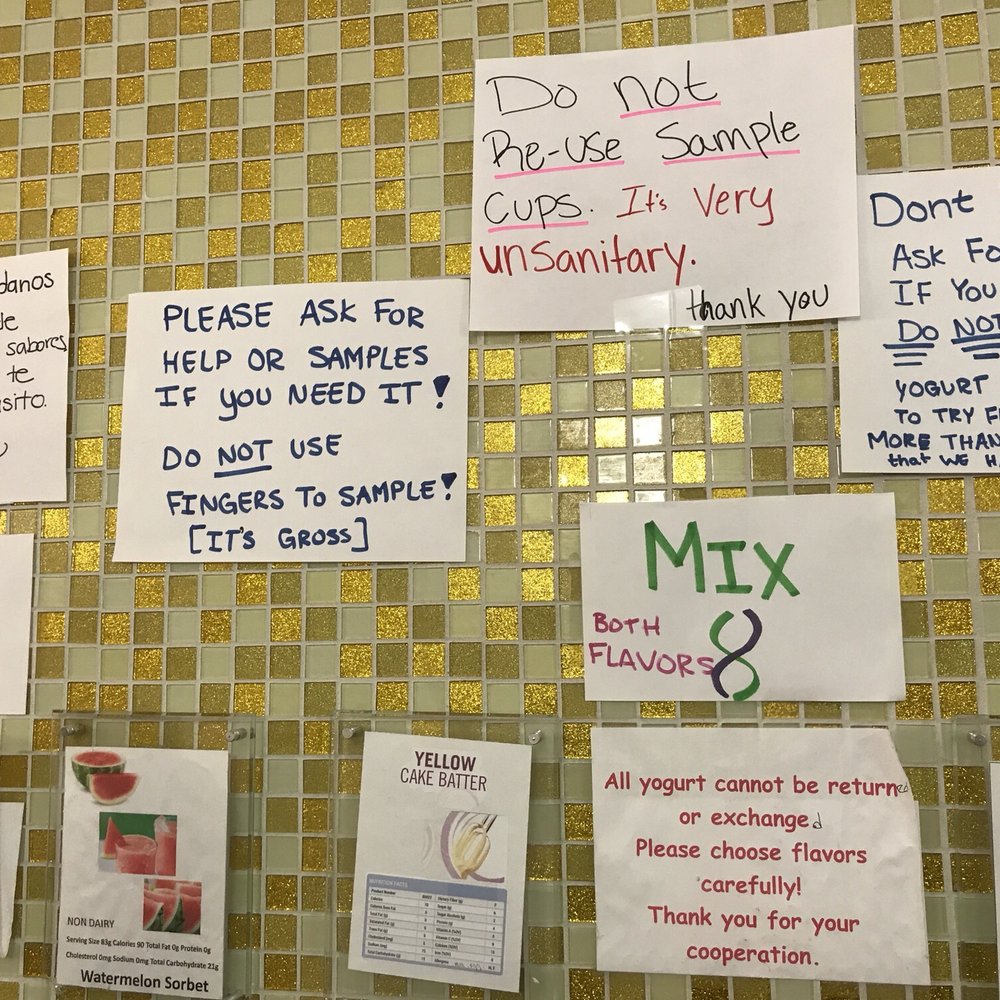 danos
sabores
te
sito.
PLEASE ASK FOR
HELP OR SAMPLES
IF YOU NEED IT!
DO NOT USE
FINGERS TO SAMPLE!
[IT'S GROSS]
Do not
Re-use Sample
Cups. It's Very
unsanitary.
thank you
Dont
ASK FO
IF YOU
DO NOT
YOGURT
TO TRY F
MORE THAN
that WE HA
MIX
BOTH
FLAVORS
NON DAIRY
Serving Size 83g Calories 90 Total Fat 0g Protein 0g
Cholesterol 0mg Sodium 0mg Total Carbohydrate 21g
Watermelon Sorbet
YELLOW
CAKE BATTER
NUTRITION FACTS
All yogurt cannot be returned
or exchanged
Please choose flavors
carefully!
Thank you for your
cooperation.